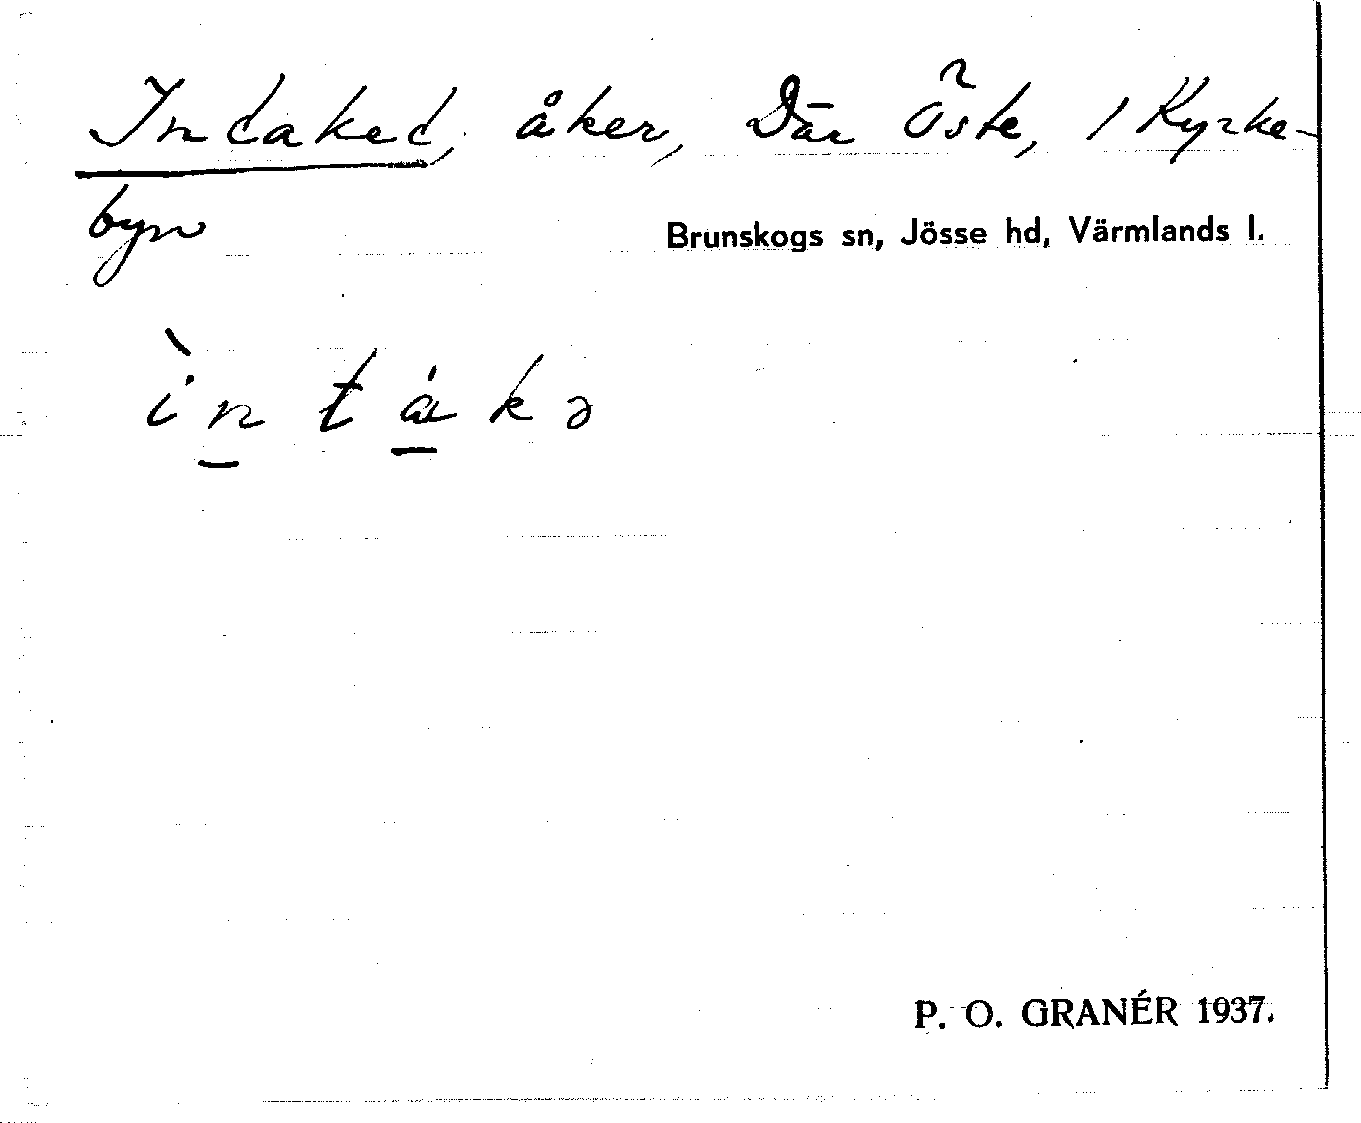 Intaket, åker, Där Öste, 1 Kyrke-
byn
Brunskogs sn, Jösse hd, Värmlands l.
ìntákə
P. O. GRANÉR 1937.